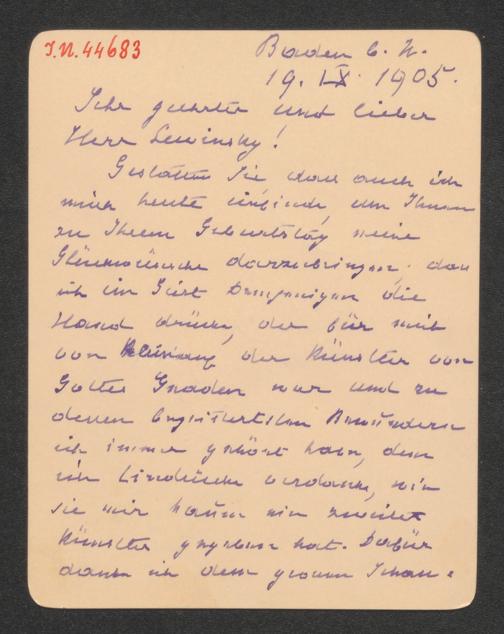 I.N. 44683
Baden b. W.
19. IX. 1905.
Sehr geehrter und lieber
Herr Lewinsky!
Gestatten Sie dass auch ich
mich heute einfinde, um Ihnen
zu Ihrem Geburtstag meine
Glückwünsche darzubringen, dass
ich im Geist Demjenigen die
Hand drücke, der für mich
von Anfang der Künstler von
Gottes Gnaden war und zu
dessen begeistertsten Bewunderern
ich immer gehört habe, dem
ich Eindrücke verdanke, wie
sie mir kaum ein zweiter
Künstler gegeben hat. Dafür
danke ich dem grossen Schau-